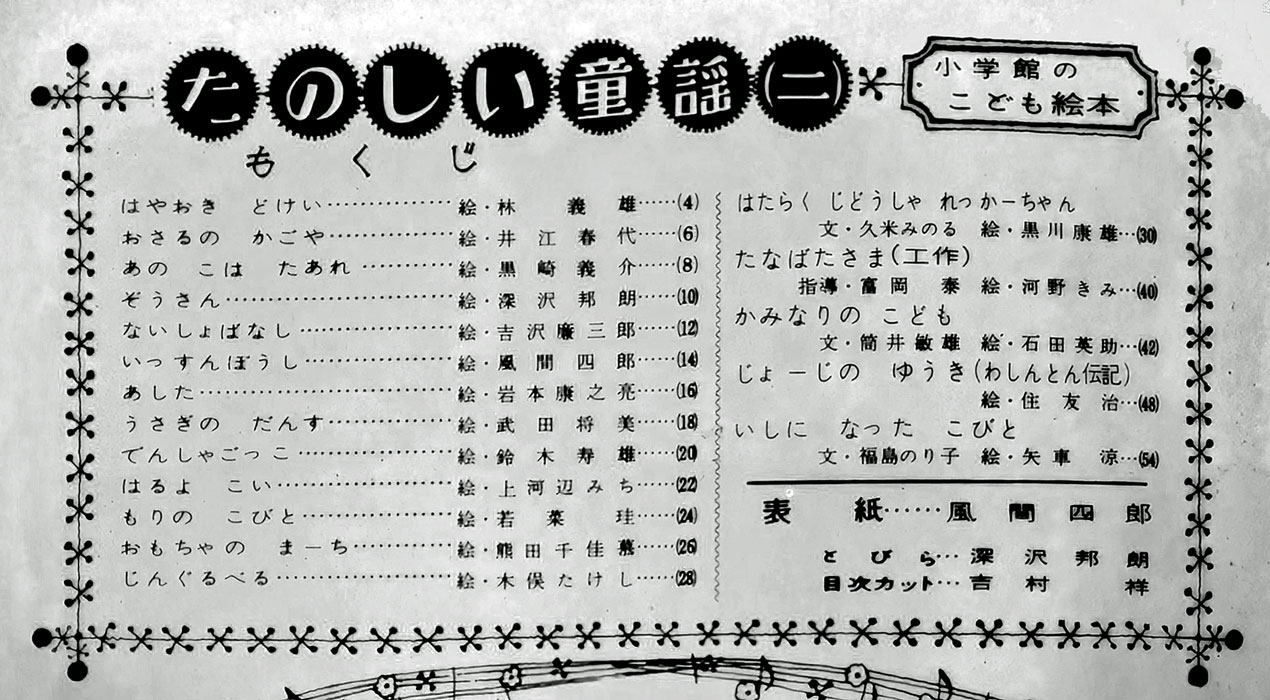 たのしい童謡(二)
小学館の
こども絵本
もくじ
はやおき どけい……………絵・林 義 雄……(4)
おさるの かごや……………絵・井江春代……(6)
あの こは たあれ…………絵・黒崎義介……(8)
ぞうさん………………………絵・深沢邦朗……(10)
ないしょばなし………………絵・吉沢廉三郎……(12)
いっすんぼうし………………絵・風間四郎……(14)
あした…………………………絵・岩本康之亮……(16)
うさぎの だんす……………絵・武田将美……(18)
でんしゃごっこ………………絵・鈴木寿雄……(20)
はるよ こい…………………絵・上河辺みち……(22)
もりの こびと………………絵・若菜 珪……(24)
おもちゃの まーち…………絵・熊田千佳慕……(26)
じんぐるべる…………………絵・木俣たけし……(28)
はたらく じどうしゃ れっかーちゃん
文・久米みのる 絵・黒川康雄…(30)
たなばたさま(工作)
指導・富岡 泰 絵・河野きみ…(40)
かみなりの こども
文・筒井敏雄 絵・石田英助…(42)
じょーじの ゆうき(わしんとん伝記)
絵・住 友 治…(48)
いしに なった こびと
文・福島のり子 絵・矢車 涼…(54)
表 紙……風間四郎
とびら…深沢邦朗
目次カット…吉村 祥